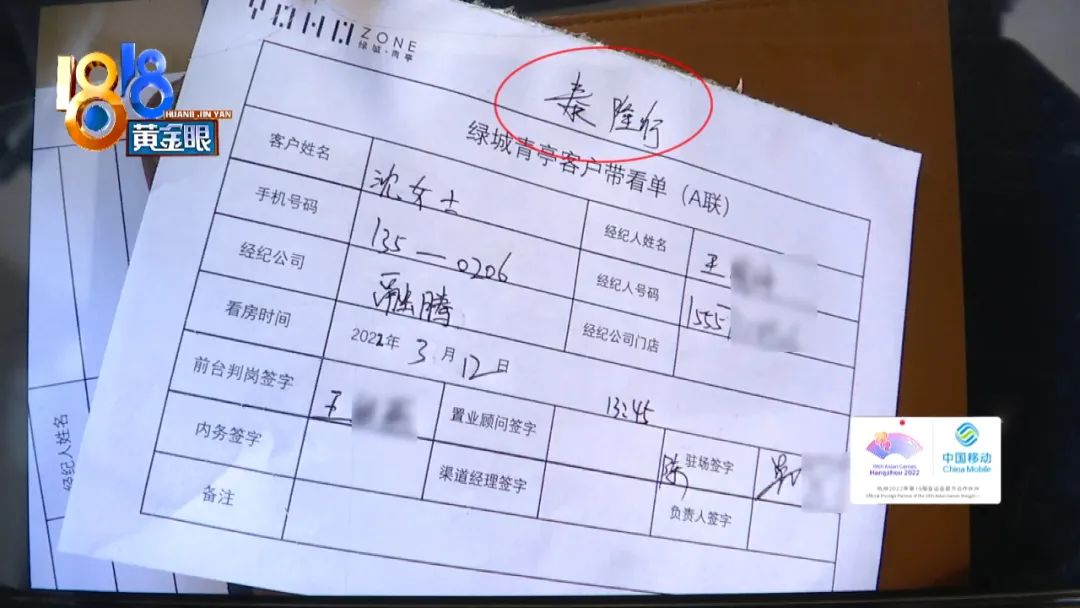 YOHO ZONE
绿城·青亭
1818
HUANG JIN YAN
黄金眼
泰隆行
绿城青亭客户带看单（A联）
客户姓名 沈女士 经纪人姓名 王
手机号码 135—0206 经纪人号码 1555
经纪公司 融腾 经纪公司门店
看房时间 2022年3月12日 13:45
前台判岗签字 王 置业顾问签字 驻场签字
内务签字 渠道经理签字 陈
备注 负责人签字
经纪人姓名
19th Asian Games
Hangzhou 2022
中国移动
China Mobile
杭州2022年第19届亚运会官方合作伙伴
Official Prestige Partner of the 19th Asian Games Hangzhou